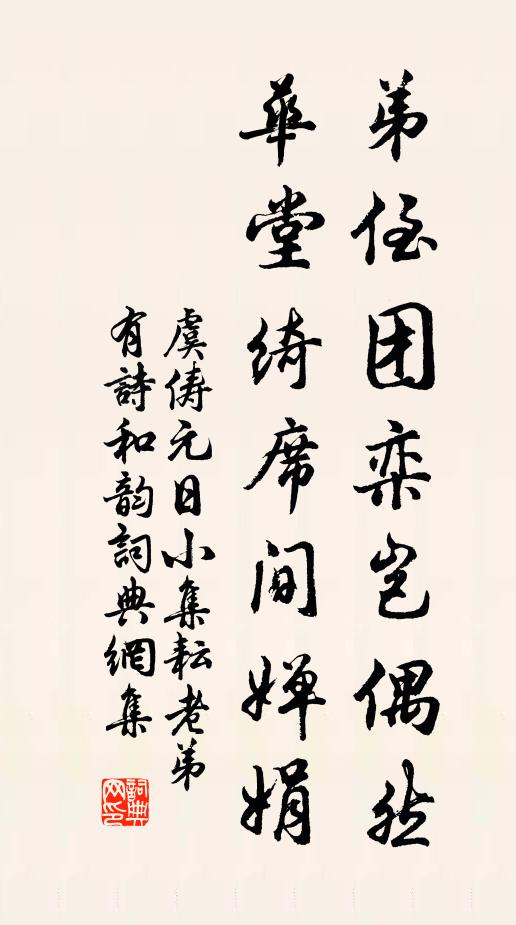 弟侄团栾岂偶然
華堂绮席间婵娟
虞俦元日小集耘老弟
有詩和韵詞典網集
詞典网印